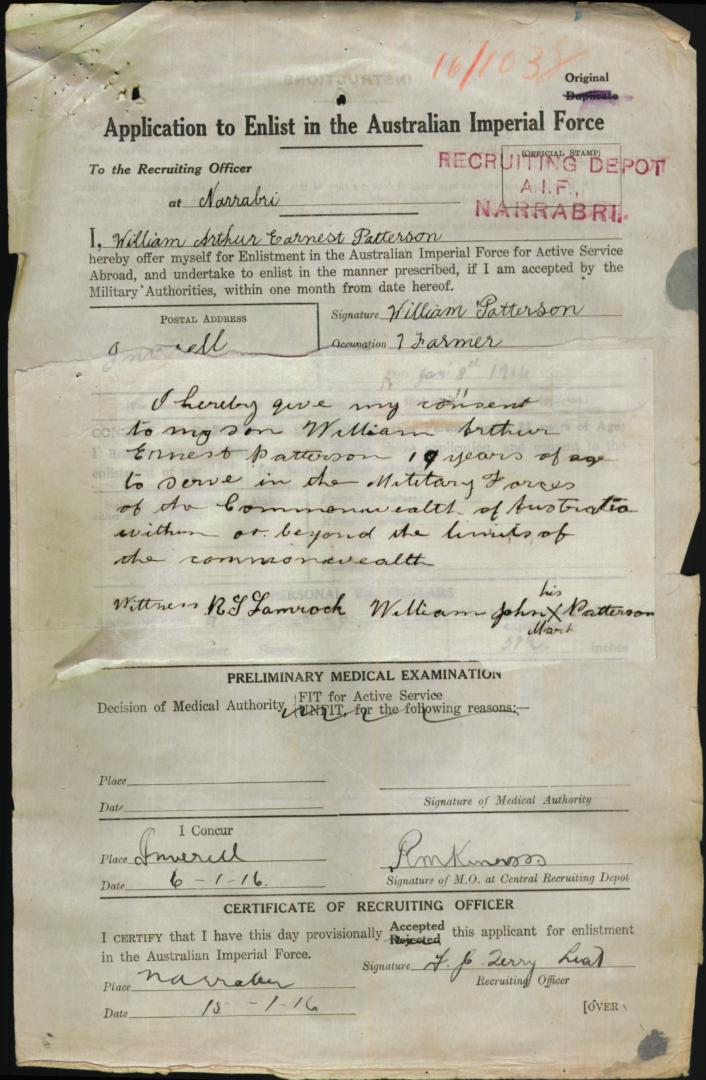 16/1038
Original
Duplicate
Application to Enlist in the Australian Imperial Force
To the Recruiting Officer
(OFFICIAL STAMP)
RECRUITING DEPOT
A.I.F.,
NARRABRI.
at Narrabri
I, William Arthur Earnest Patterson
hereby offer myself for Enlistment in the Australian Imperial Force for Active Service
Abroad, and undertake to enlist in the manner prescribed, if I am accepted by the
Military Authorities, within one month from date hereof.
POSTAL ADDRESS
Signature William Patterson
Inverell
Occupation Farmer
I hereby give my consent
to my son William Arthur
Ernest Patterson 19 years of age
to serve in the Military Forces
of the Commonwealth of Australia
within or beyond the limits of
the commonwealth
Wittness William John his X Mark Patterson
PRELIMINARY MEDICAL EXAMINATION
Decision of Medical Authority FIT for Active Service
UNFIT, for the following reasons:—
Place
Date
Signature of Medical Authority
I Concur
Place Inverell
Date 6-1-16.
Signature of M.O. at Central Recruiting Depot
CERTIFICATE OF RECRUITING OFFICER
I CERTIFY that I have this day provisionally Accepted Rejected this applicant for enlistment
in the Australian Imperial Force.
Signature F. J. Terry Lieut
Recruiting Officer
Place Narrabri
Date 15-1-16
[OVER